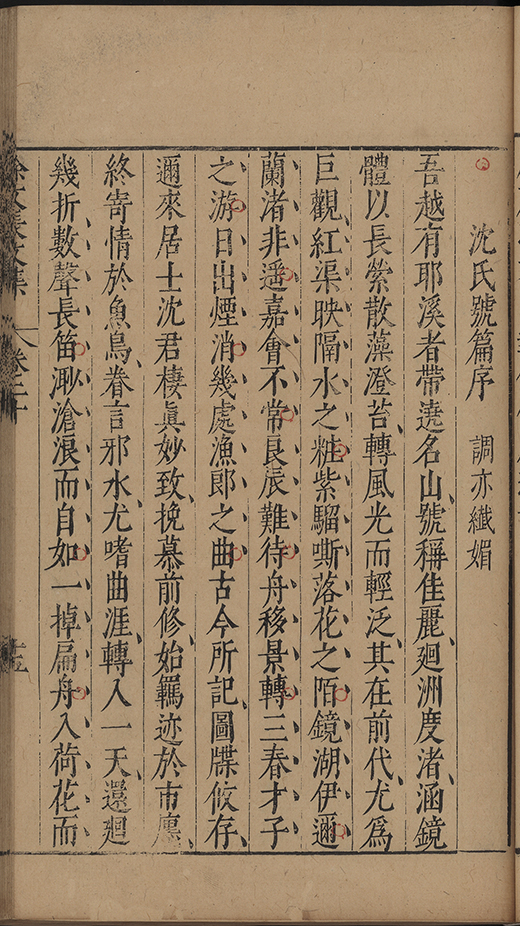 沈氏號篇序 調亦纖媚
吾越有耶溪者帶遶名山號稱佳麗廻洲度渚涵鏡
體以長縈散藻澄苔轉風光而輕泛其在前代尤爲
巨觀紅渠映隔水之粧紫騮嘶落花之陌鏡湖伊邇
蘭渚非遥嘉會不常良辰難待舟移景轉三春才子
之游日出煙消幾處漁郎之曲古今所記圖牒攸存
邇來居士沈君棲眞妙致挽慕前修始羈迹於市廛
終寄情於魚鳥眷言邪水尤嗜曲涯轉入一天還廻
幾折數聲長笛渺滄浪而自如一掉扁舟入荷花而
徐文長文集 卷二十 十三